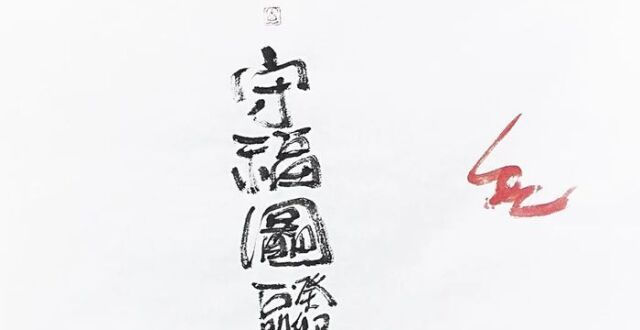 守福圖